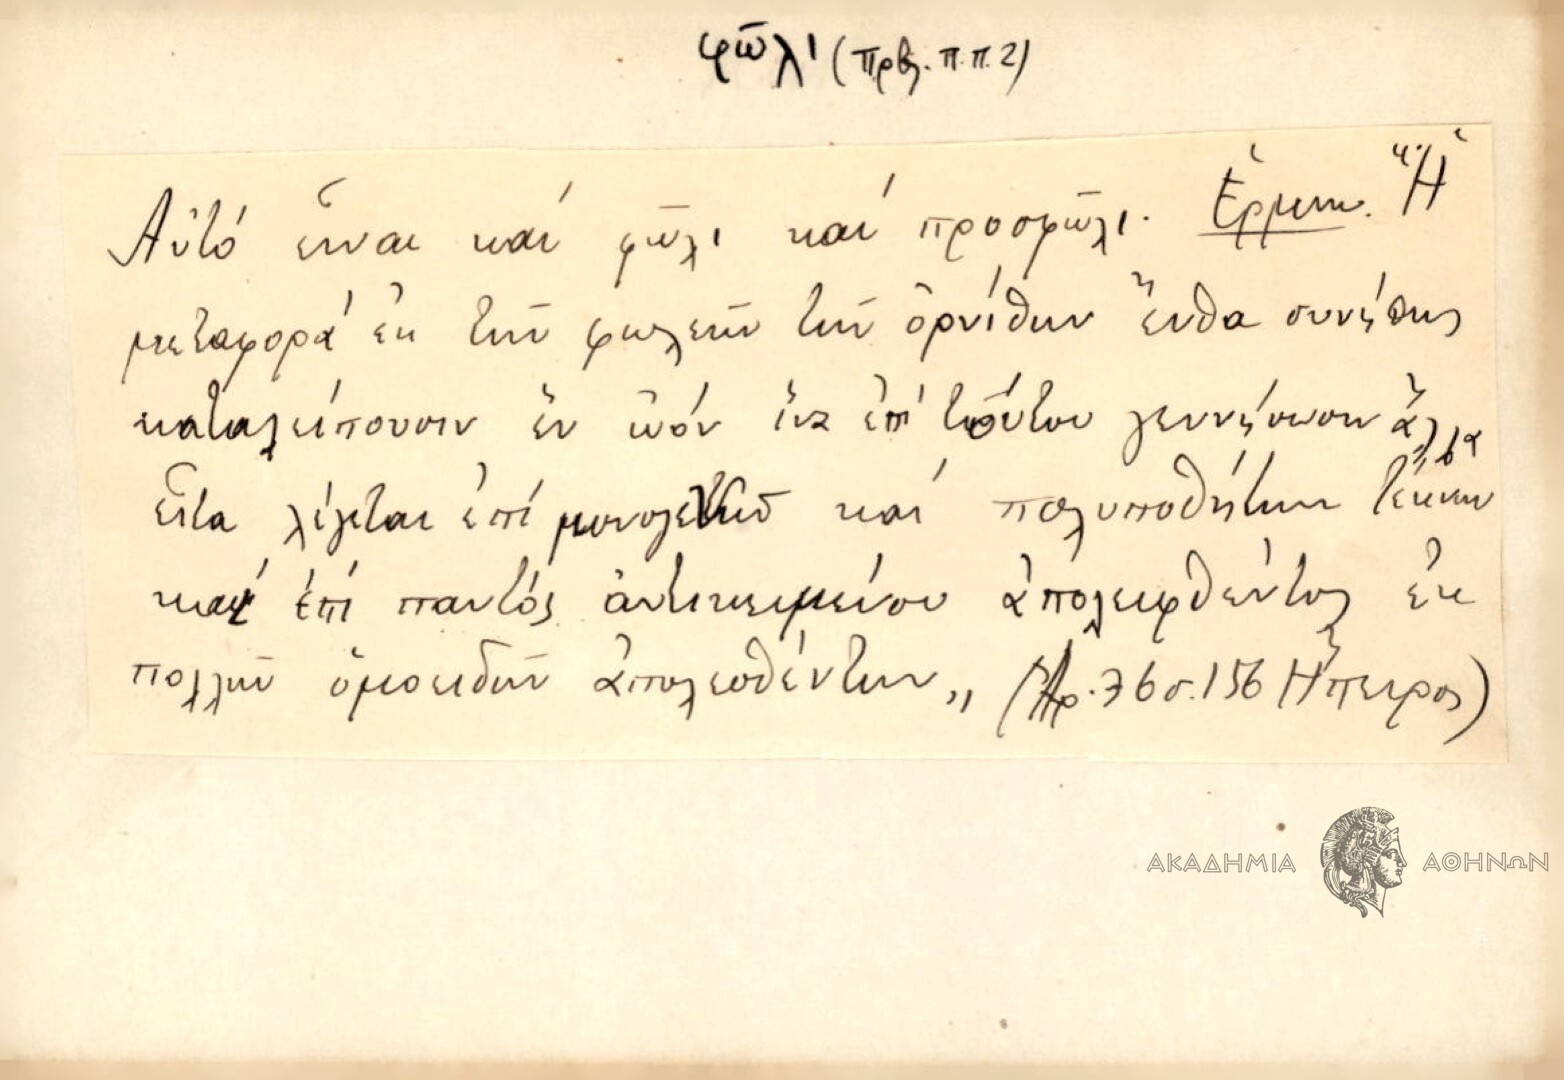 φῶλι (Πρβλ. π.π. 2)
Αὐτό εἶναι καί φῶλι καί προσφῶλι. Ἑρμην. "Ἡ
μεταφορά ἐκ τῶν φωλεῶν τῶν ὀρνίθων ἔνθα συνήθως
καταλείπουσιν ἓν ὠόν ἵνα ἐπί τούτου γεννήσωσιν ἄλλα
Εἶτα λέγεται ἐπί μονογενοῦς καί πολυποθήτων τέκνων
καί ἐπί παντός ἀντικειμένου ἀπολειφθέντος ἐκ
πολλῶν ὁμοειδῶν ἀπολεσθέντων„ (Ἀρ. 76 σ. 156 Ἤπειρος)
ΑΚΑΔΗΜΙΑ ΑΘΗΝΩΝ